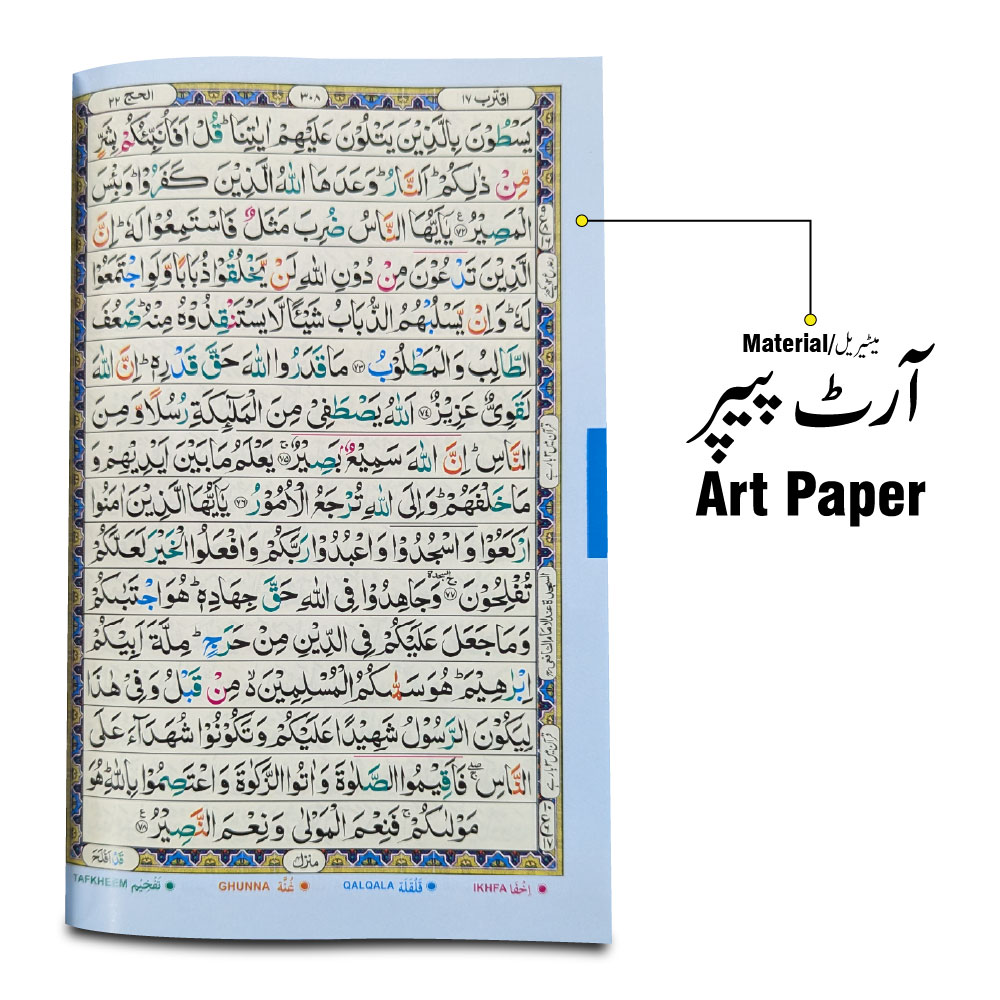 اقترب ١٧ ٣٠٨ الحج ٢٢
يَسْطُوْنَ بِالَّذِيْنَ يَتْلُوْنَ عَلَيْهِمْ اٰيٰتِنَا ؕ قُلْ اَفَاُنَبِّئُكُمْ بِشَرٍّ
مِّنْ ذٰلِكُمْ ؕ اَلنَّارُ ؕ وَعَدَهَا اللّٰهُ الَّذِيْنَ كَفَرُوْا ؕ وَبِئْسَ
الْمَصِيْرُ ﴿٧٢﴾ يٰۤاَيُّهَا النَّاسُ ضُرِبَ مَثَلٌ فَاسْتَمِعُوْا لَهٗ ؕ اِنَّ
الَّذِيْنَ تَدْعُوْنَ مِنْ دُوْنِ اللّٰهِ لَنْ يَّخْلُقُوْا ذُبَابًا وَّلَوِ اجْتَمَعُوْا
لَهٗ ؕ وَاِنْ يَّسْلُبْهُمُ الذُّبَابُ شَيْـًٔا لَّا يَسْتَنْقِذُوْهُ مِنْهُ ؕ ضَعُفَ
الطَّالِبُ وَالْمَطْلُوْبُ ﴿٧٣﴾ مَا قَدَرُوا اللّٰهَ حَقَّ قَدْرِهٖ ؕ اِنَّ اللّٰهَ
لَقَوِيٌّ عَزِيْزٌ ﴿٧٤﴾ اَللّٰهُ يَصْطَفِيْ مِنَ الْمَلٰٓئِكَةِ رُسُلًا وَّمِنَ
النَّاسِ ؕ اِنَّ اللّٰهَ سَمِيْعٌۢ بَصِيْرٌ ﴿٧٥﴾ يَعْلَمُ مَا بَيْنَ اَيْدِيْهِمْ وَ
مَا خَلْفَهُمْ ؕ وَاِلَى اللّٰهِ تُرْجَعُ الْاُمُوْرُ ﴿٧٦﴾ يٰۤاَيُّهَا الَّذِيْنَ اٰمَنُوا
ارْكَعُوْا وَاسْجُدُوْا وَاعْبُدُوْا رَبَّكُمْ وَافْعَلُوا الْخَيْرَ لَعَلَّكُمْ
تُفْلِحُوْنَ ﴿٧٧﴾ وَجَاهِدُوْا فِي اللّٰهِ حَقَّ جِهَادِهٖ ؕ هُوَ اجْتَبٰىكُمْ
وَمَا جَعَلَ عَلَيْكُمْ فِي الدِّيْنِ مِنْ حَرَجٍ ؕ مِلَّةَ اَبِيْكُمْ
اِبْرٰهِيْمَ ؕ هُوَ سَمّٰىكُمُ الْمُسْلِمِيْنَ ۙ مِنْ قَبْلُ وَفِيْ هٰذَا
لِيَكُوْنَ الرَّسُوْلُ شَهِيْدًا عَلَيْكُمْ وَتَكُوْنُوْا شُهَدَآءَ عَلَى
النَّاسِ ۖۚ فَاَقِيْمُوا الصَّلٰوةَ وَاٰتُوا الزَّكٰوةَ وَاعْتَصِمُوْا بِاللّٰهِ ؕ هُوَ
مَوْلٰىكُمْ ۚ فَنِعْمَ الْمَوْلٰى وَنِعْمَ النَّصِيْرُ ﴿٧٨﴾
قَدْ اَفْلَحَ
IKHFA اِخْفَا QALQALA قَلْقَلَة GHUNNA غُنَّة TAFKHEEM تَفْخِيْم
Material/میٹیریل
آرٹ پیپر
Art Paper